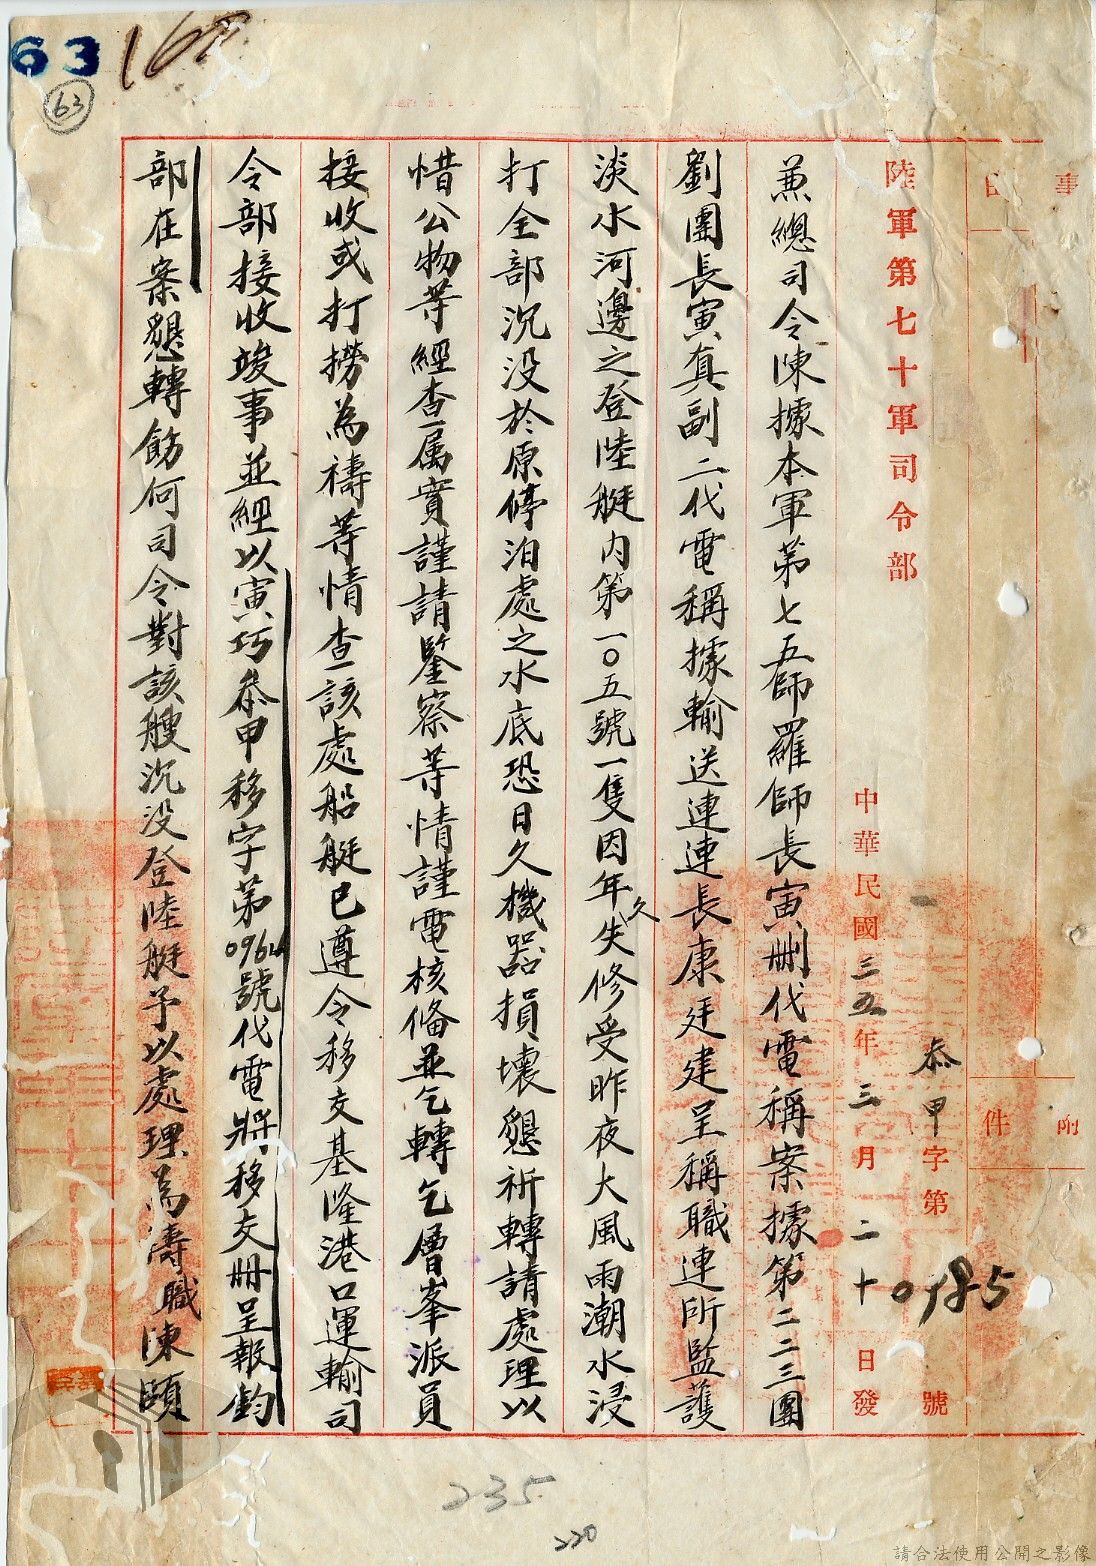 63
63
事
由
附
件
陸軍第七十軍司令部
叅甲字第0985號
中華民國三五年三月二十日發
兼總司令陳據本軍第七五師羅師長寅刪代電稱案據第二二三團
劉團長寅真副二代電稱據輸送連連長康廷建呈稱職連所監護
淡水河邊之登陸艇內第一〇五號一隻因年久失修受昨夜大風雨潮水浸
打全部沉没於原停泊處之水底恐日久機器損壞懇祈轉請處理以
惜公物等經查屬實謹請鑒察等情謹電核偹並乞轉乞層峯派員
接收或打撈為禱等情查該處船艇已遵令移交基隆港口運輸司
令部接收竣事並經以寅巧叅甲移字第0962號代電將移交册呈報鈞
部在案懇轉飭何司令對該艘沉没登陸艇予以處理為濤職陳頤
235
220
請合法使用公開之影像